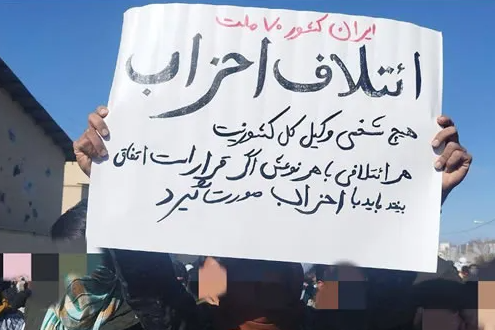 ایران کشور ۷۰ ملت
ائتلاف احزاب
هیچ شخصی وکیل کل کشور نیست
هر ائتلافی با هر نوعش اگر قرار است اتفاق
بیفتد باید با احزاب صورت بگیرد